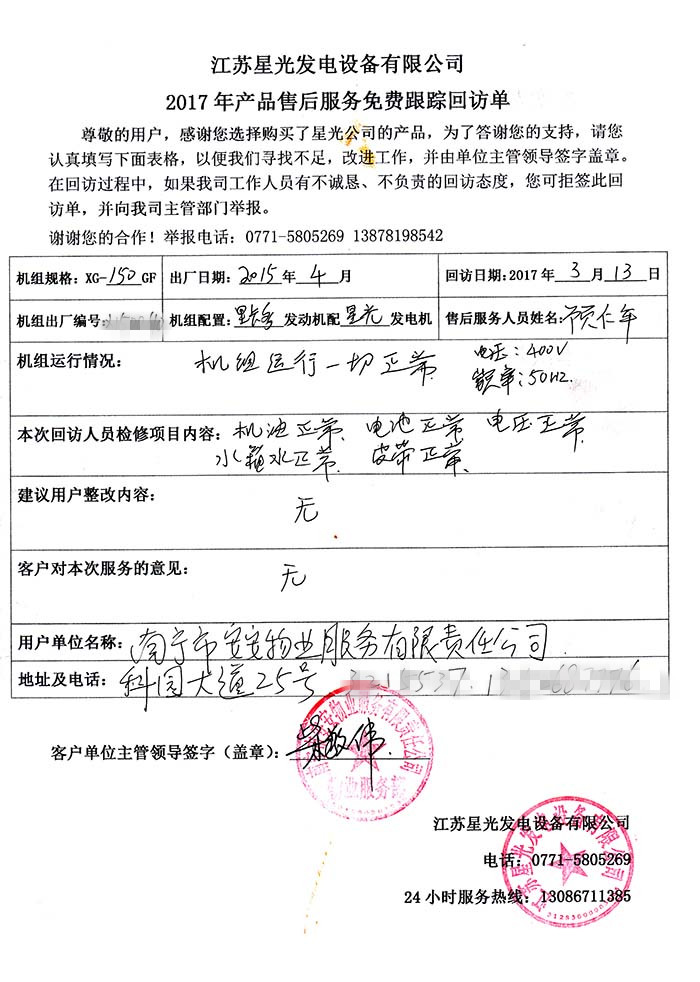 江苏星光发电设备有限公司
2017年产品售后服务免费跟踪回访单
尊敬的用户，感谢您选择购买了星光公司的产品，为了答谢您的支持，请您
认真填写下面表格，以便我们寻找不足，改进工作，并由单位主管领导签字盖章。
在回访过程中，如果我司工作人员有不诚恳、不负责的回访态度，您可拒签此回
访单，并向我司主管部门举报。
谢谢您的合作！举报电话：0771-5805269 13878198542
机组规格：XG-150GF 出厂日期：2015年4月 回访日期：2017年3月13日
机组出厂编号： 机组配置： 发动机配星光发电机 售后服务人员姓名：
机组运行情况： 机组运行一切正常 电压：400V
频率：50HZ.
本次回访人员检修项目内容：机油正常、电池正常、电压正常
水箱水正常、皮带正常.
建议用户整改内容：
无
客户对本次服务的意见：
无
用户单位名称：南宁市安安物业服务有限责任公司
地址及电话：科园大道25号
客户单位主管领导签字（盖章）：
物业服务部
江苏星光发电设备有限公司
电话：0771-5805269
24小时服务热线：13086711385
江苏星光发电设备有限公司